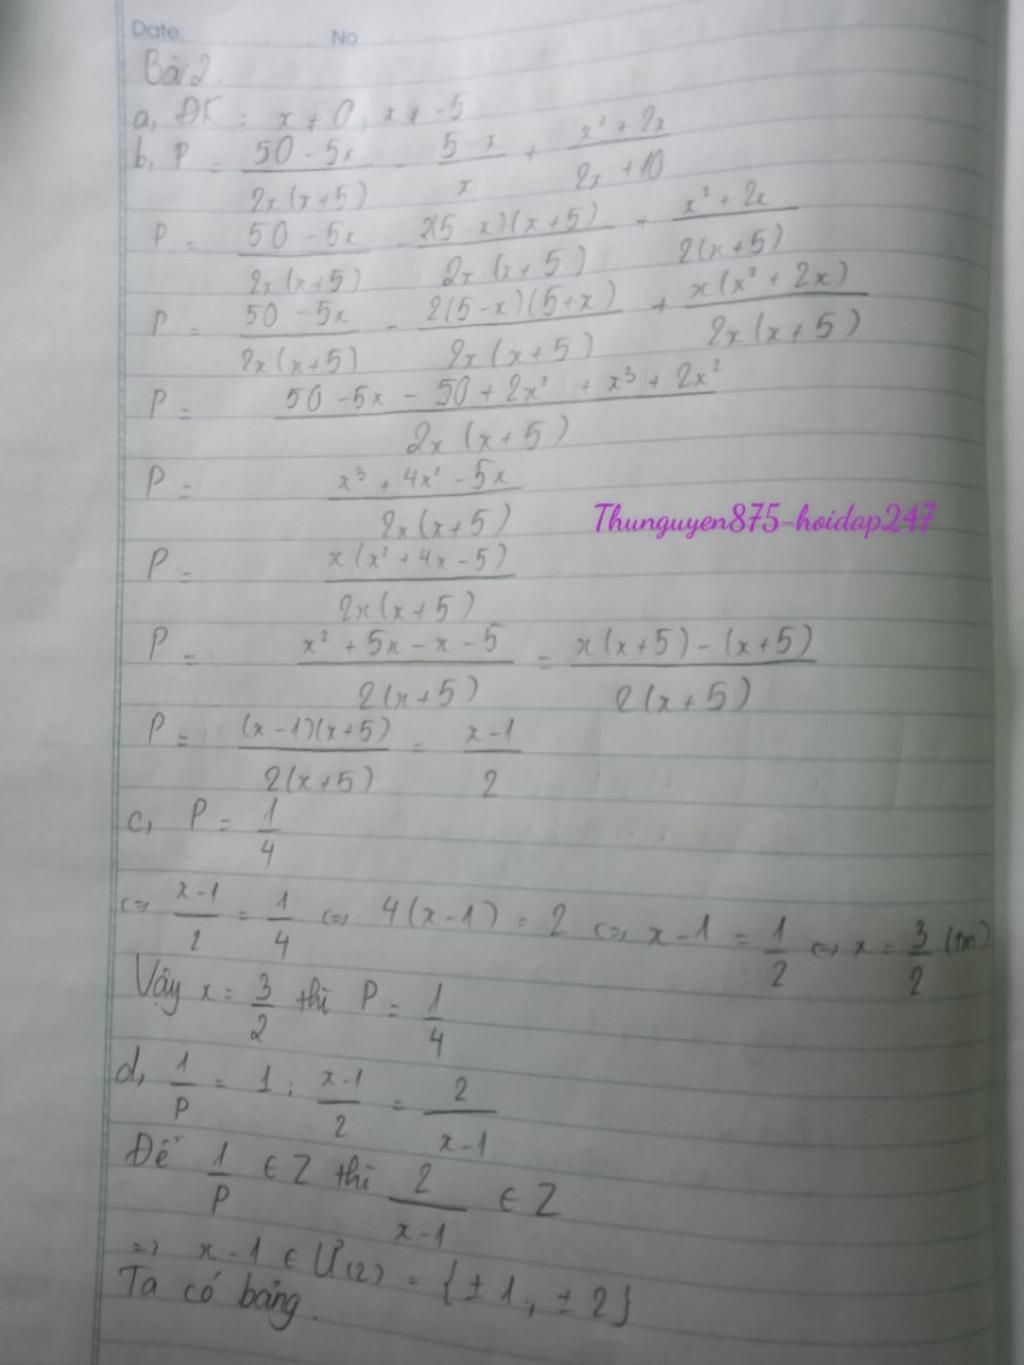 Date: No
Bài 2.
a, ĐK: x ≠ 0, x ≠ -5
b, P = (50 - 5x)/(2x(x+5)) - (5-x)/x + (x² + 2x)/(2x + 10)
P = (50 - 5x)/(2x(x+5)) - (2(5-x)(x+5))/(2x(x+5)) + (x² + 2x)/(2(x+5))
P = (50 - 5x)/(2x(x+5)) - (2(5-x)(5+x))/(2x(x+5)) + (x(x² + 2x))/(2x(x+5))
P = (50 - 5x - 50 + 2x² + x³ + 2x²)/(2x(x+5))
P = (x³ + 4x² - 5x)/(2x(x+5))
Thunguyen875-hoidap247
P = (x(x² + 4x - 5))/(2x(x+5))
P = (x² + 5x - x - 5)/(2(x+5)) = (x(x+5) - (x+5))/(2(x+5))
P = ((x-1)(x+5))/(2(x+5)) = (x-1)/2
c, P = 1/4
<=> (x-1)/2 = 1/4 <=> 4(x-1) = 2 <=> x-1 = 1/2 <=> x = 3/2 (tm)
Vậy x = 3/2 thì P = 1/4
d, 1/P = 1 : (x-1)/2 = 2/(x-1)
Để 1/P ∈ Z thì 2/(x-1) ∈ Z
=> x-1 ∈ Ư(2) = {±1, ±2}
Ta có bảng.